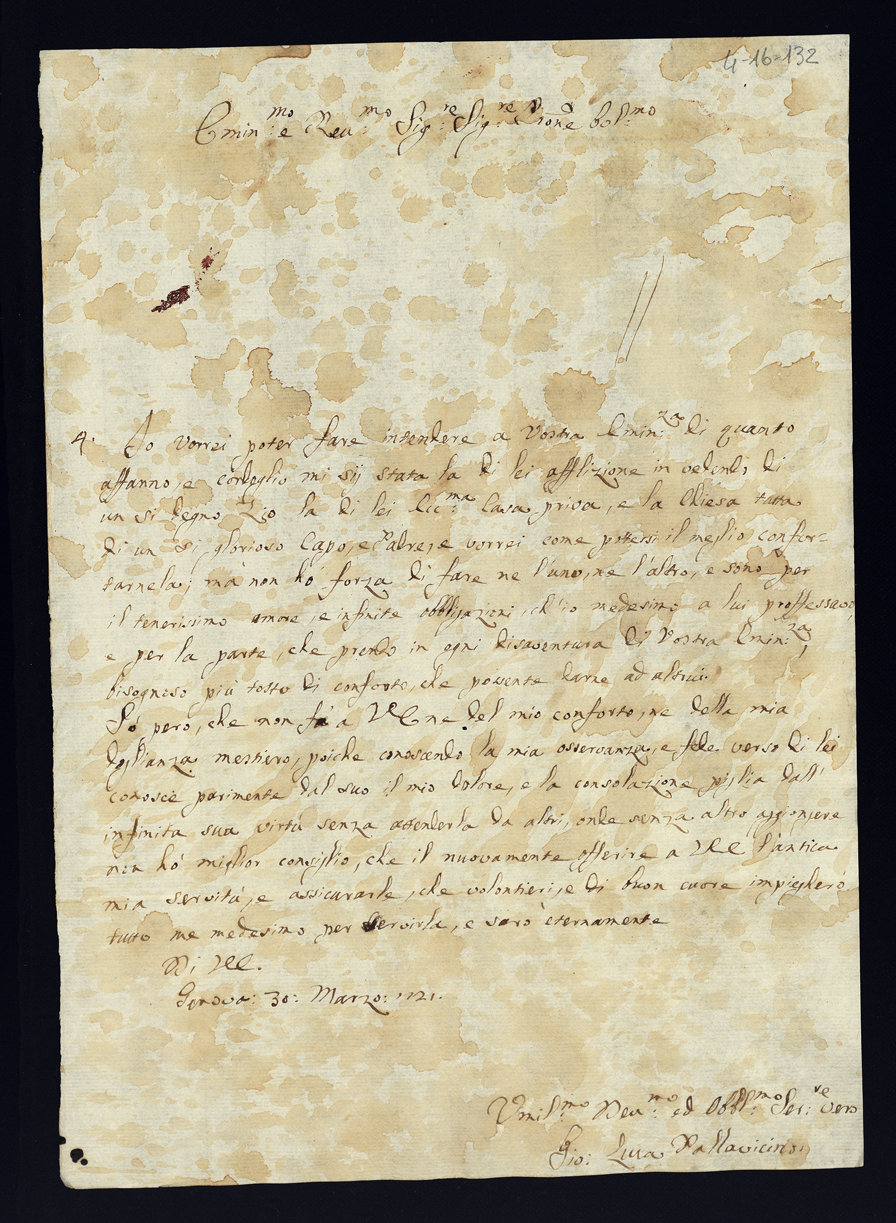 4-16-132
Emin:mo e Reu:mo Sig:re Sig:re Prone Col:mo
4. Io vorrei poter fare intendere a Vostra Emin:za di quanto
affanno, e cordoglio mi sij stata la di lei afflizione in vedendo di
un si degno Zio la di lei Ecc:ma Casa priva, e la Chiesa tutta
di un si glorioso Capo, e Padre, e vorrei come potessi il meglio confor=
tarnela; mà non hò forza di fare ne l'uno, ne l'altro, e sono per
il tenerissimo amore, e infinite obbligazioni, ch'io medesimo a lui proffessavo,
e per la parte, che prendo in ogni disaventura di Vostra Emin:za,
bisognoso più tosto di conforto, che possente darne ad altrui.
Sò però, che non fà a VE ne del mio conforto, ne della mia
doglianza mestiero, poiche conoscendo la mia osservanza, e fede verso di lei
conosce parimente dal suo il mio dolore, e la consolazione piglia dall'
infinita sua virtù senza attenderla da altri, onde senza altro aggionjere
non hò miglior consiglio, che il nuovamente offerire a VE l'antica
mia servitù, e assicurarle, che volontieri, e di buon cuore impiegherò
tutto me medesimo per servirla, e sarò eternamente
Di VE.
Genova: 30: Marzo: 1721.
Vmil:mo Deu:mo ed Obbl:mo Ser:re vero
Gio: Luca Pallavicino